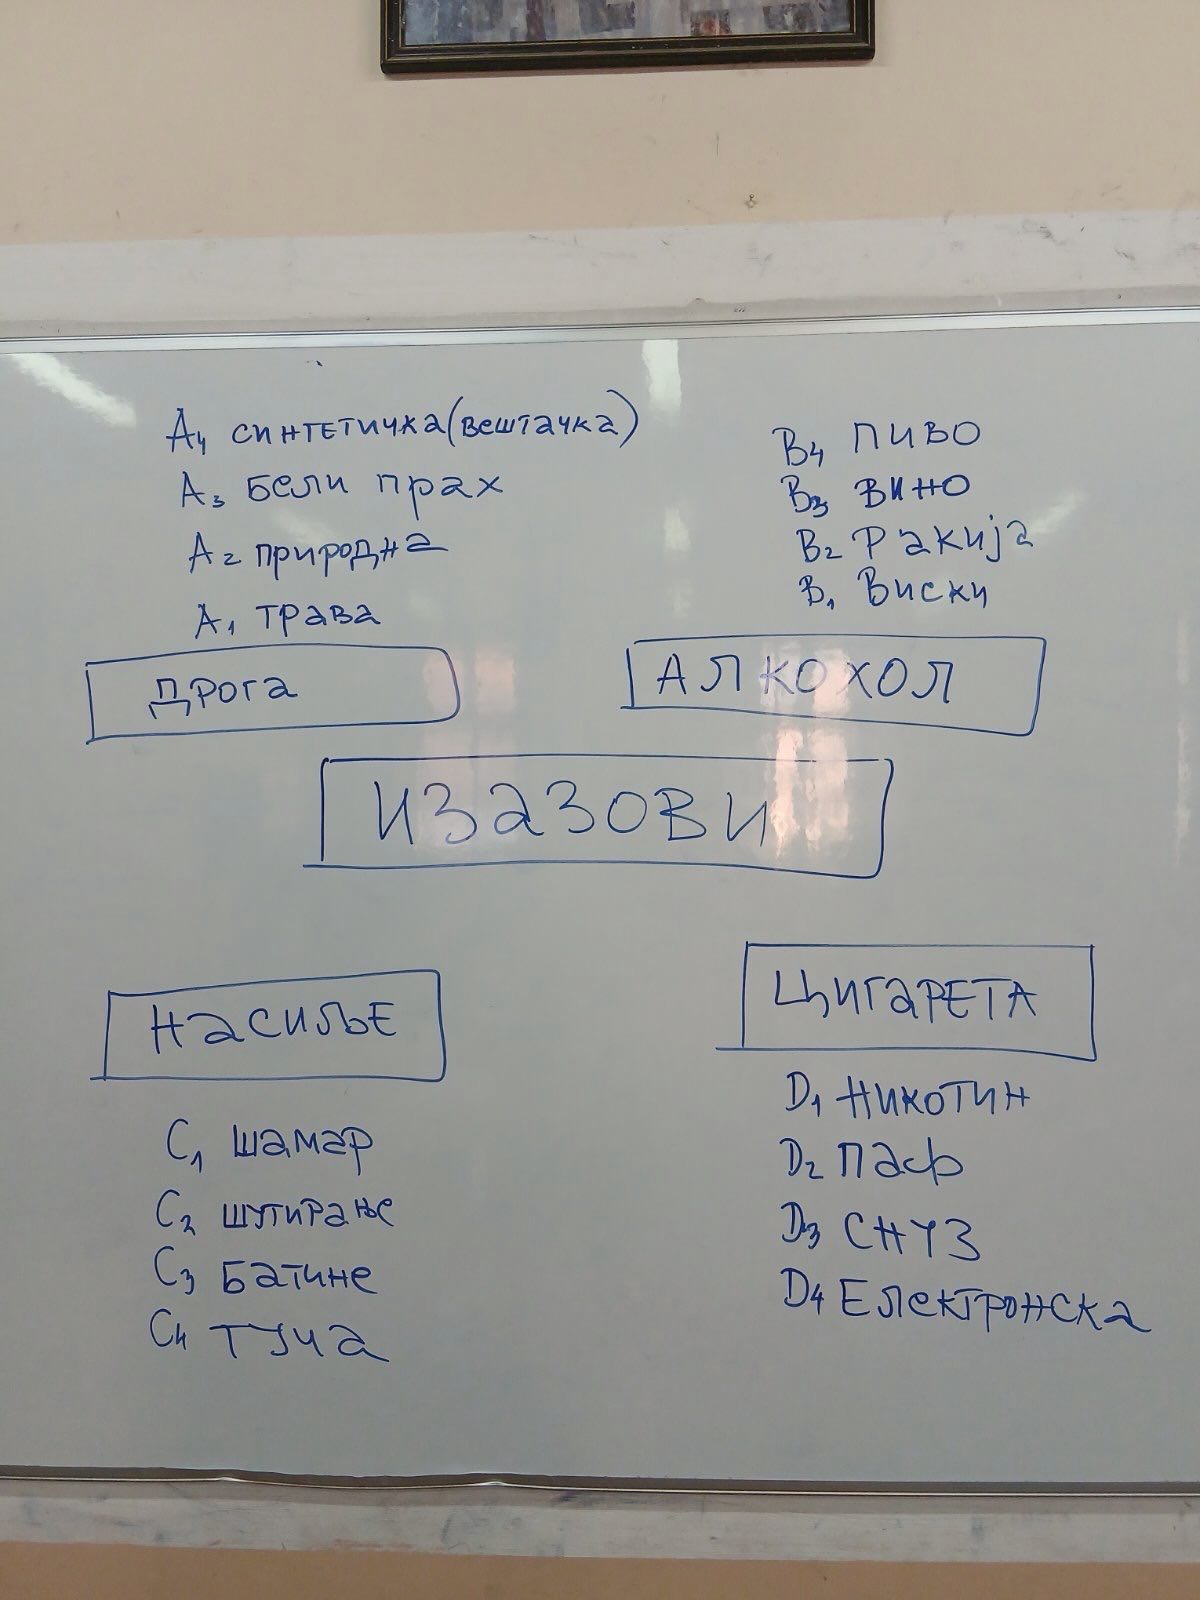 A4 синтетичка (вештачка)
A3 бели прах
A2 природна
A1 трава
Дрога
B4 пиво
B3 вино
B2 Ракија
B1 Виски
АЛКОХОЛ
ИЗАЗОВИ
НАСИЉЕ
C1 шамар
C2 шутирање
C3 батине
C4 туча
ЦИГАРЕТА
D1 никотин
D2 паф
D3 снуз
D4 Електронска